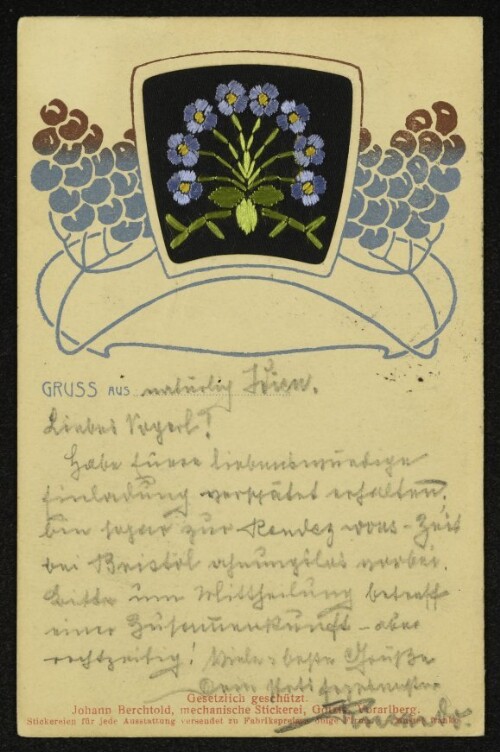 GRUSS AUS natürlig Wien.
Liebes Vogerl!
Habe Eure liebenswürdige
Einladung verspätet erhalten,
bin sogar zur Rendez vous-Zeit
bei Bristol ahnungslos vorbei.
Bitte um Mittheilung betreff
einer Zusammenkunft - aber
rechtzeitig! Viele beste Grüße
Dein
Gesetzlich geschützt.
Johann Berchtold, mechanische Stickerei, Götzis, Vorarlberg.
Stickereien für jede Ausstattung versendet zu Fabrikspreisen